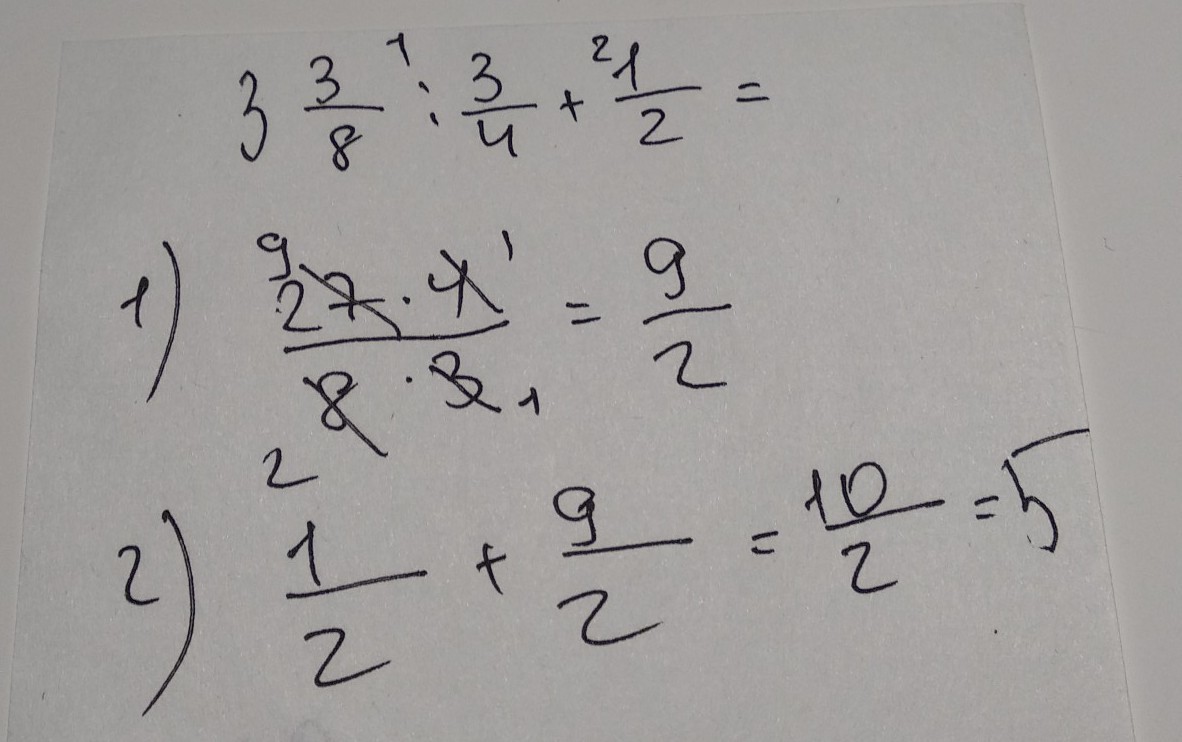 3 3/8 : 3/4 + 1/2 =
1) 27 · 4 / 8 · 3 = 9/2
2) 1/2 + 9/2 = 10/2 = 5